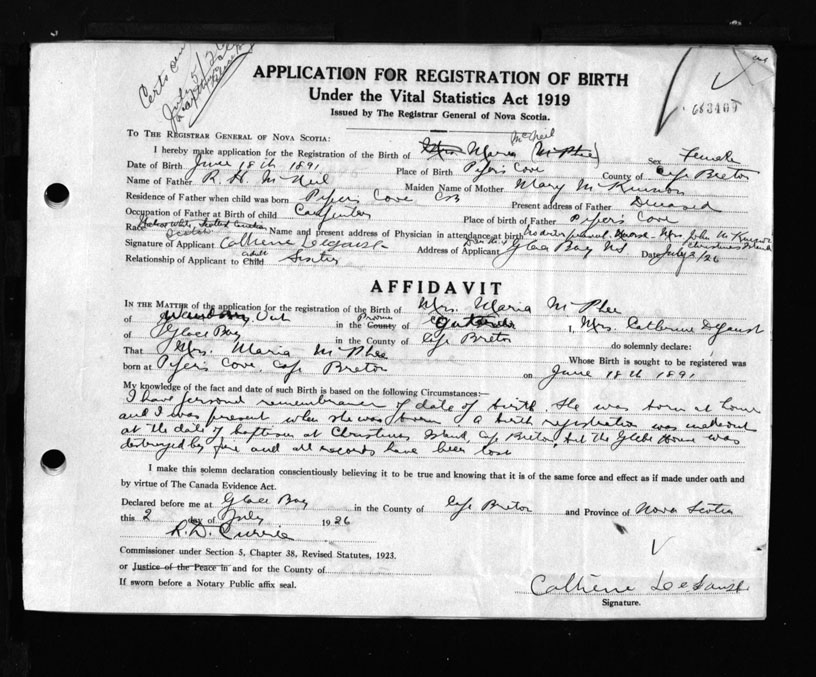 Certs sent
July 5/26
APPLICATION FOR REGISTRATION OF BIRTH
Under the Vital Statistics Act 1919
Issued by The Registrar General of Nova Scotia.
TO THE REGISTRAR GENERAL OF NOVA SCOTIA:
McNeil
I hereby make application for the Registration of the Birth of Maria (McPhee) Sex Female
Date of Birth June 18th 1891 Place of Birth Pipers Cove County of Cape Breton
Name of Father R. H. McNeil Maiden Name of Mother Mary McKinnon
Residence of Father when child was born Pipers Cove CB Present address of Father Deceased
Occupation of Father at Birth of child Carpenter Place of birth of Father Pipers Cove
Race Scotch Name and present address of Physician in attendance at birth No doctor present. Nurse Mrs John McKinnon
Christmas Island
Signature of Applicant Catherine Address of Applicant Glace Bay NS Date July 2/26
adult
Relationship of Applicant to Child Sister
AFFIDAVIT
IN THE MATTER of the application for the registration of the Birth of Mrs. Maria McPhee
Province
of Ont in the County of Ontario I, Mrs. Catherine
of Glace Bay in the County of Cape Breton do solemnly declare:
That Mrs. Maria McPhee Whose Birth is sought to be registered was
born at Pipers Cove, Cape Breton on June 18th 1891
My knowledge of the fact and date of such Birth is based on the following Circumstances:—
I have personal remembrance of date of birth. She was born at home
and I was present when she was born. a birth registration was made out
at the date of baptism at Christmas Island, Cape Breton, but the Glebe House was
destroyed by fire and all records have been lost
I make this solemn declaration conscientiously believing it to be true and knowing that it is of the same force and effect as if made under oath and
by virtue of The Canada Evidence Act.
Declared before me at Glace Bay in the County of Cape Breton and Province of Nova Scotia
this 2 day of July 1926
R. D. Currie
Commissioner under Section 5, Chapter 38, Revised Statutes, 1923.
or Justice of the Peace in and for the County of
If sworn before a Notary Public affix seal.
Catherine
Signature.